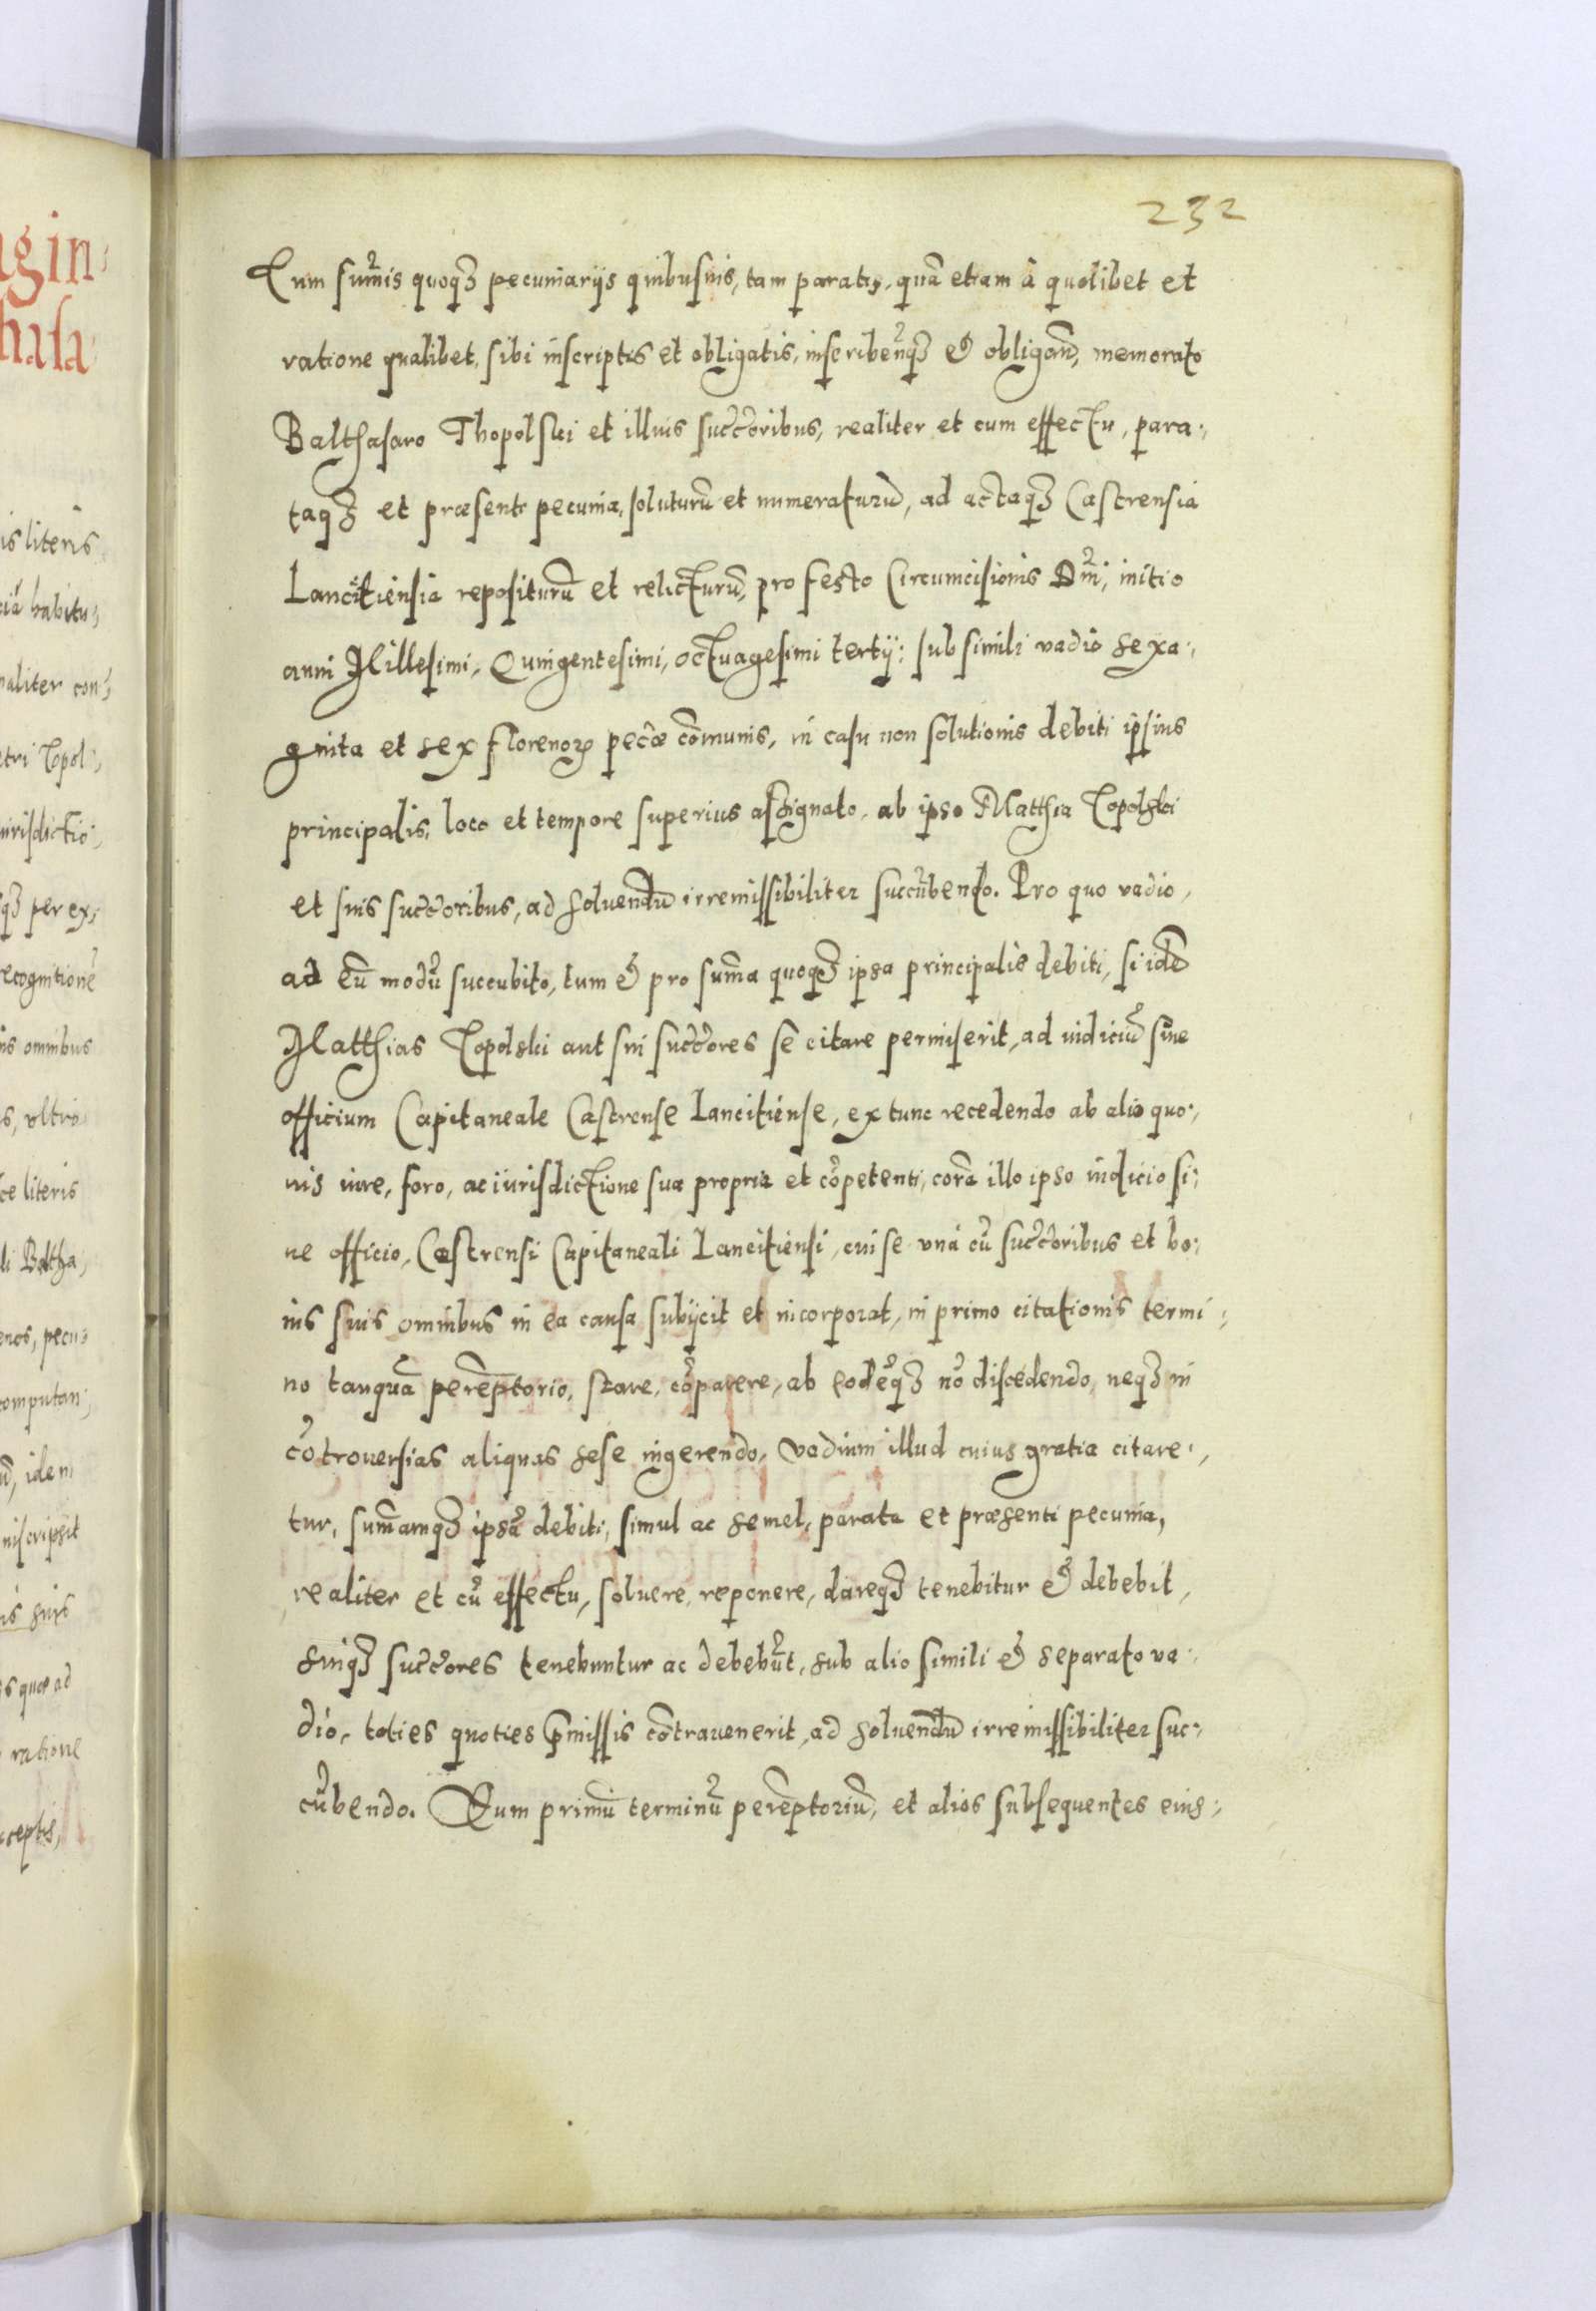 232
Tum sum̃is quoqꝫ pecuniarijs quibusuis, tam paratis, quã etiam à quolibet et
ratione qualibet, sibi inscriptis et obligatis, inscribeñqꝫ & obligan̄, memorato
Balthasaro Thopolski et illius succ̃oribus, realiter et cum effectu, para⸗
taqꝫ et præsenti pecunia, soluturũ et numeraturũ, ad actaqꝫ Castrensia
Lancitiensia repositurũ et relicturũ, pro festo Circumcisionis Dñi, initio
anni Millesimi, Quingentesimi, octuagesimi tertij: sub simili vadio sexa⸗
ginta et sex florenoꝝ pec̃æ cõmunis, in casu non solutionis debiti ipsius
principalis, loco et tempore superius assignato, ab ipso Matthia Topolski
et suis succ̃oribus, ad soluendũ irremissibiliter succũbendo. Pro quo vadio,
ad eũ modũ succubito, tum & pro sum̃a quoqꝫ ipsa principalis debiti, si idẽ
Matthias Topolski aut sui succ̃ores se citare permiserit, ad iudiciũ siue
officium Capitaneale Castrense Lancitiense, ex tunc recedendo ab alio quo⸗
uis iure, foro, ac iurisdictione sua propria et cõpetenti, corã illo ipso iudicio si⸗
ue officio, Castrensi Capitaneali Lancitiensi, cui se vnà cũ succ̃oribus et bo⸗
nis suis omnibus in ea causa subijcit et incorporat, in primo citationis termi⸗
no tanquã perẽptorio, stare, cõparere, ab eodẽqꝫ nõ discedendo, neqꝫ in
cõtrouersias aliquas sese ingerendo, vadium illud cuius gratia citare⸗
tur, sum̃amqꝫ ipsã debiti, simul ac semel, parata et præsenti pecunia,
realiter et cũ effectu, soluere, reponere, dareqꝫ tenebitur & debebit,
suiqꝫ succ̃ores tenebuntur ac debebũt, sub alio simili & separato va⸗
dio, toties quoties p̃missis cõtrauenerit, ad soluendũ irremissibiliter suc⸗
cũbendo. Eum primũ terminũ perẽptoriũ, et alios subsequentes eius⸗